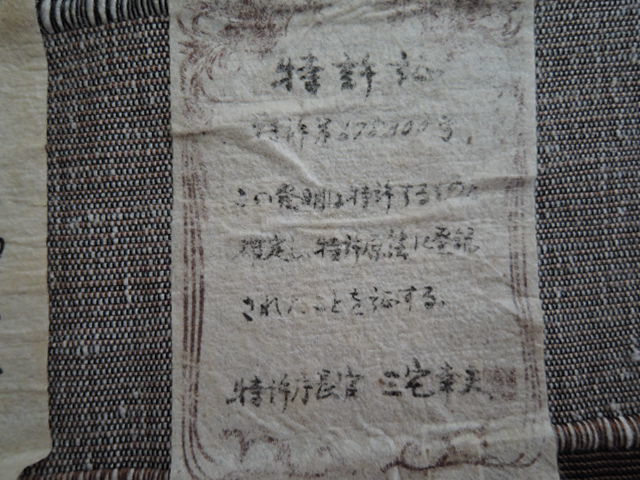 特許証
特許第
この発明は特許するものと
確定し、特許原簿に登録
されたことを証する。
特許庁長官 三宅幸夫